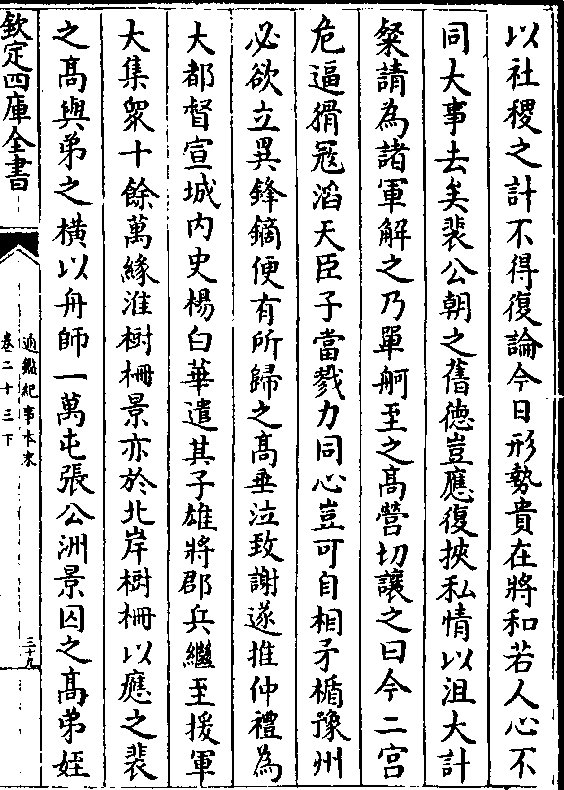 以社稷之計不得復論今日形勢貴在將和若人心不
同大事去矣裴公朝之舊徳豈應復挾私情以沮大計
粲請為諸軍解之乃單舸至之髙營切讓之曰今二宫
危逼猾冦滔天臣子當戮力同心豈可自相矛楯豫州
必欲立異鋒鏑便有所歸之髙垂泣致謝遂推仲禮為
大都督宣城内史楊白華遣其子雄將郡兵繼至援軍
大集衆十餘萬緣淮樹柵景亦於北岸樹柵以應之裴
之髙與弟之横以舟師一萬屯張公洲景囚之髙弟姪
欽定四庫全書
通鑑紀事本末
卷二十三下
三十九